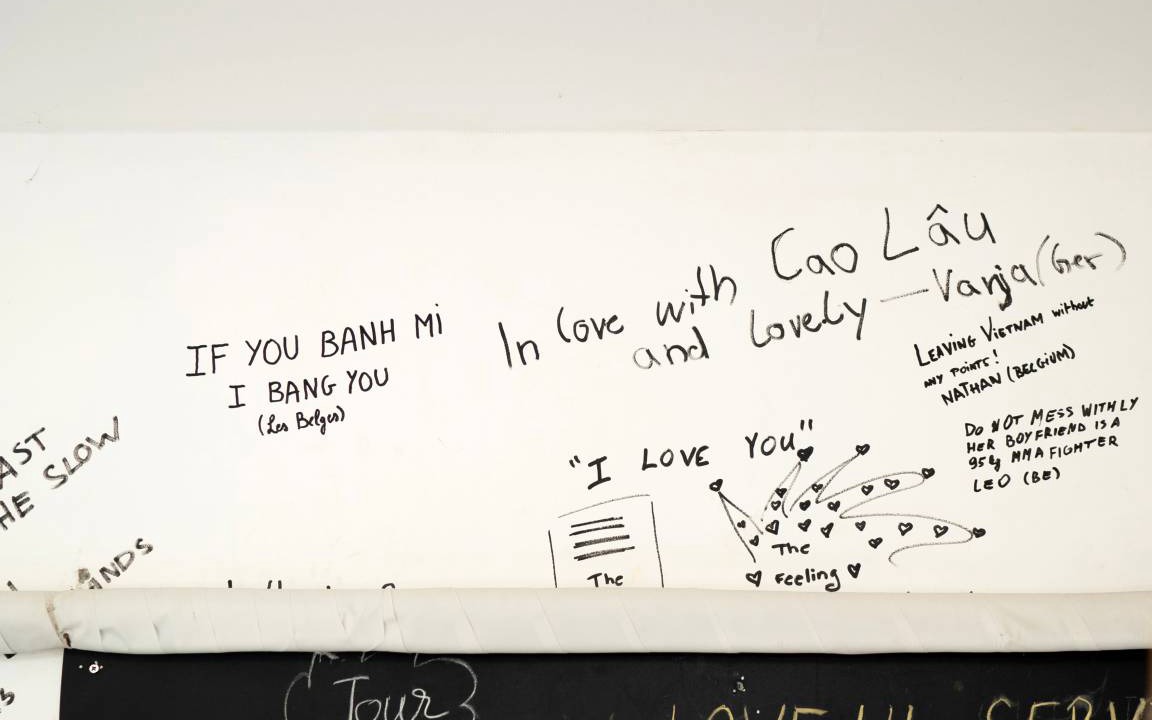 IF YOU BANH Mi
I BANG YOU
(Les Belges)
In love with Cao Lâu
and lovely — Vanja (Ger)
LEAVING VIETNAM without
ANY POINTS!
NATHAN (BELGIUM)
Do NOT MESS WITH LY
HER BOYFRIEND IS A
95kg MMA FIGHTER
LEO (BE)
"I LOVE YOU"
The
The
Feeling
AST
HE SLOW
ANDS
Tour